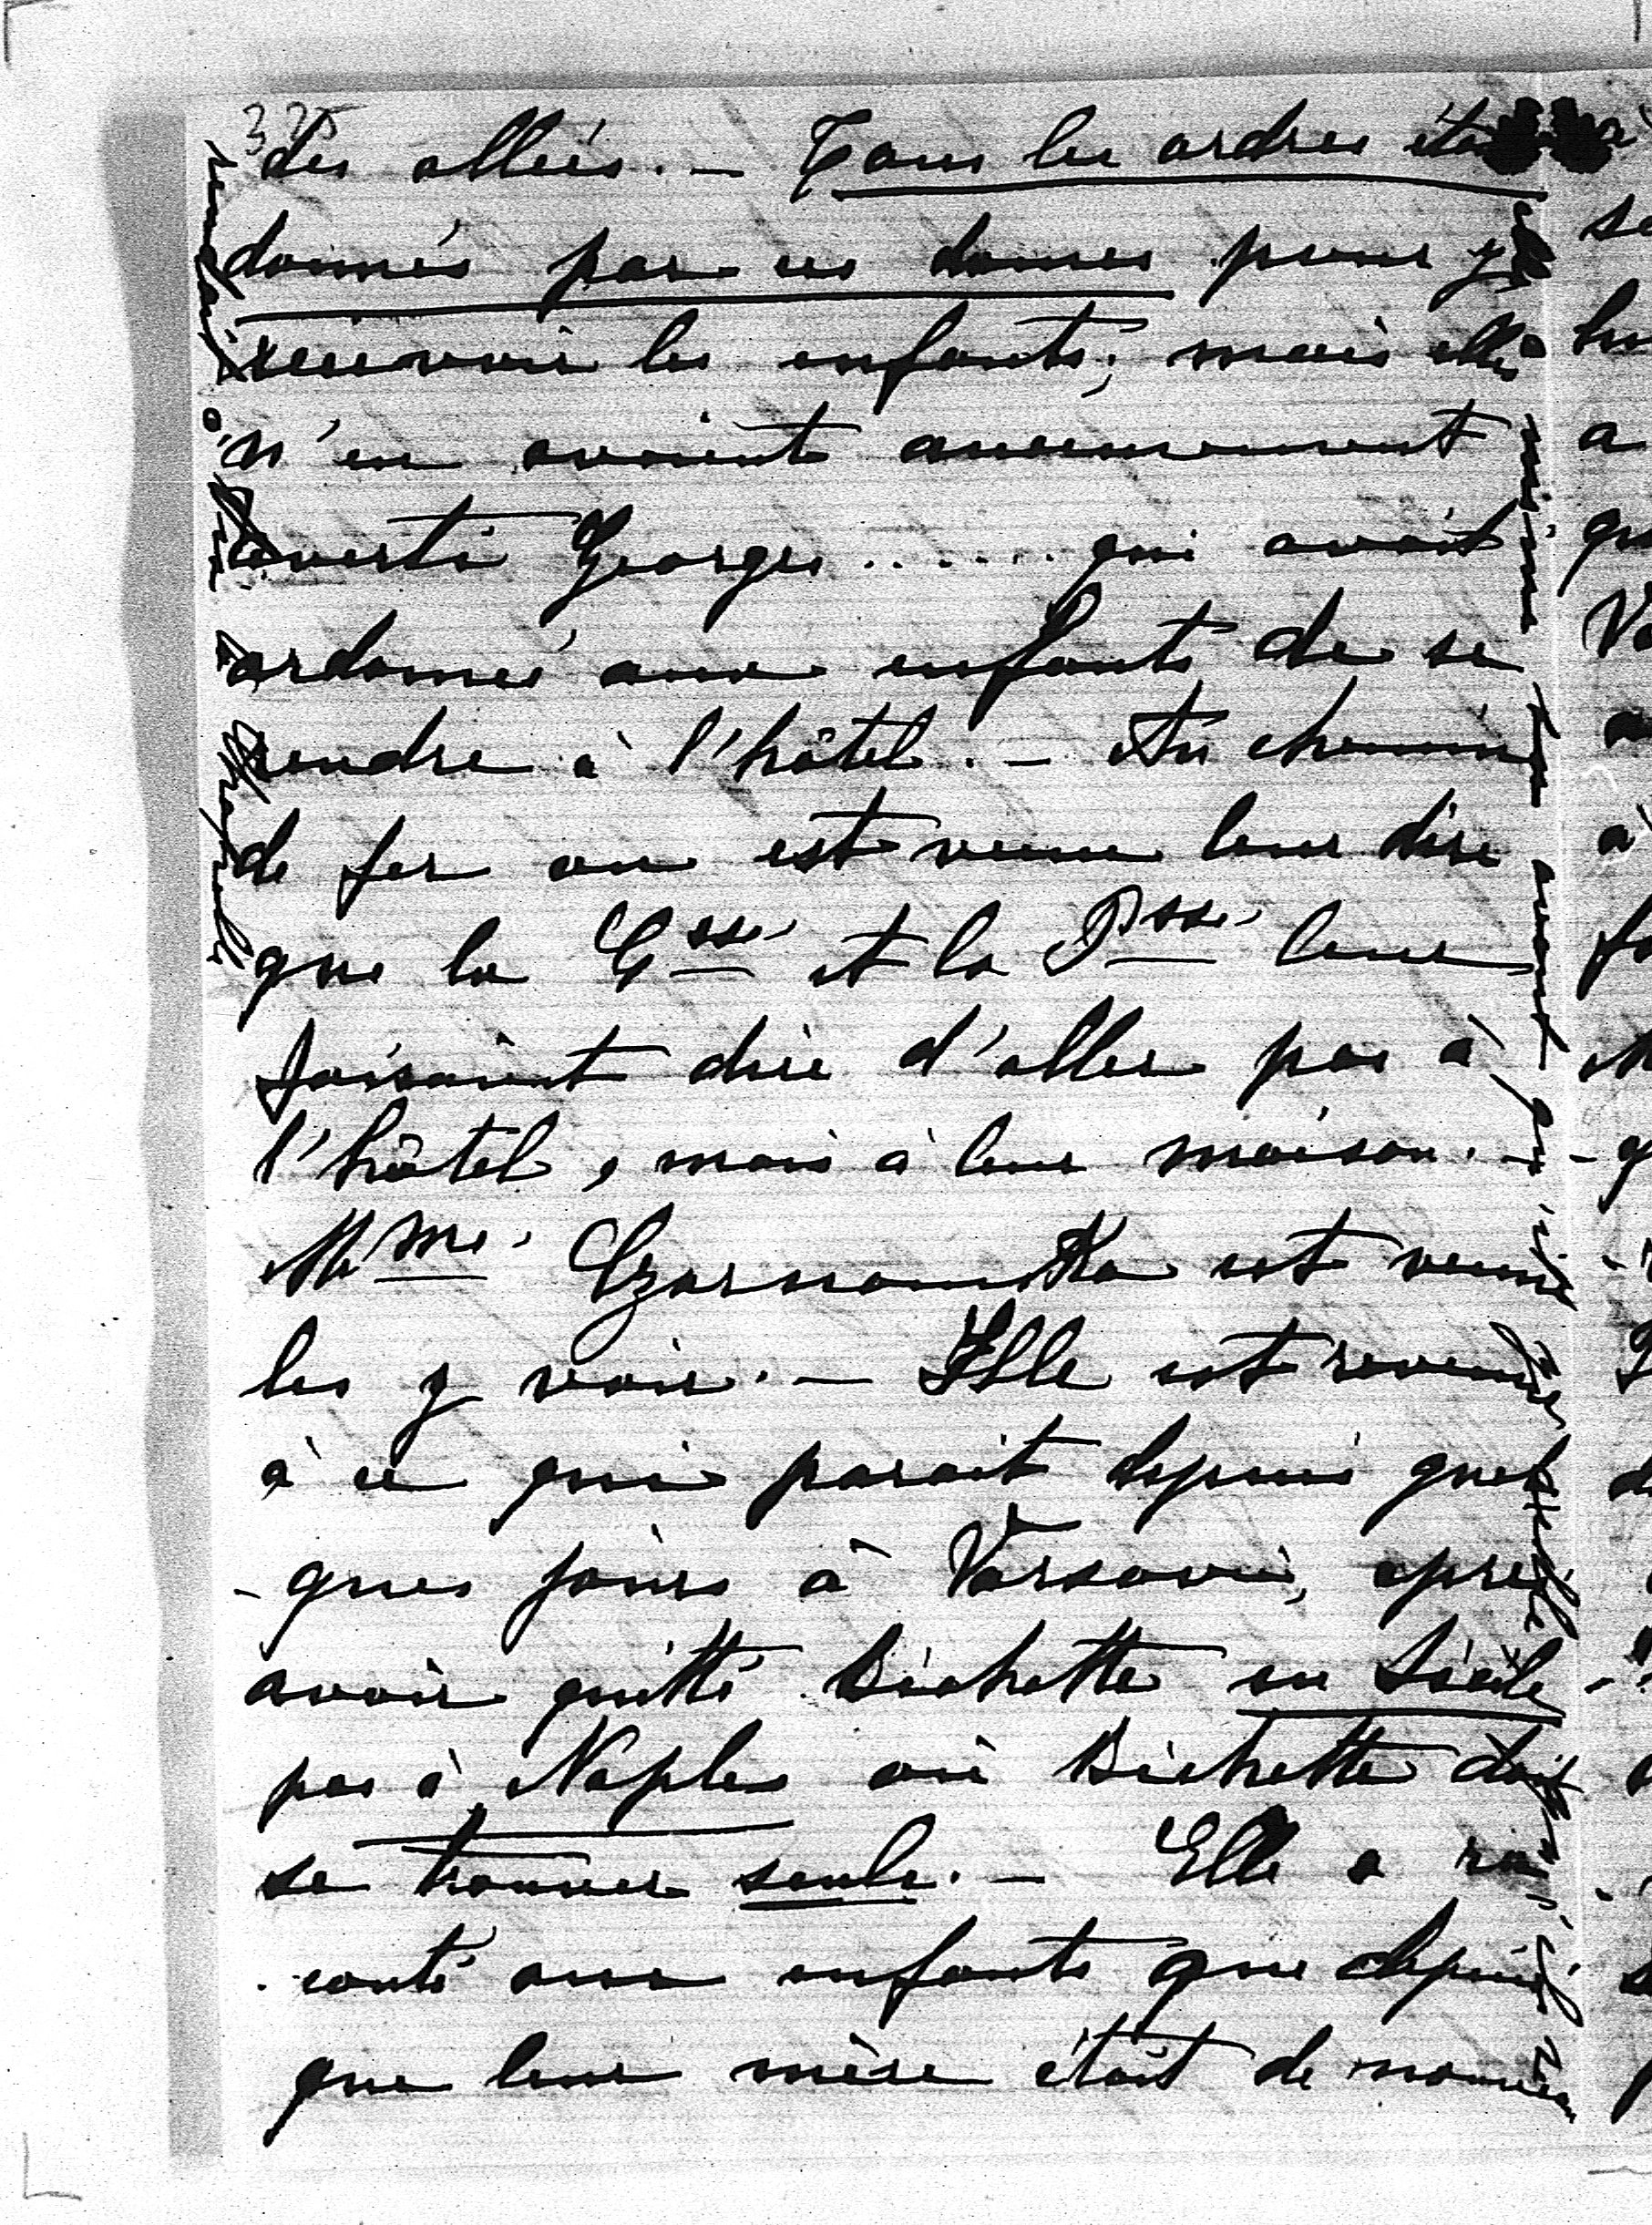 325
des allées. — Tous les ordres éta
donnés par ces dames pour y
recevoir les enfants; mais elles
n'en avaient aucunement
averti Georges...... qui avait
ordonné aux enfants de se
rendre à l'hôtel. — Au chemin
de fer on est venu leur dire
que la Csse. et la Psse. leur
faisaient dire d'aller pas à
l'hôtel, mais à leur maison. —
Mme. Czarnomska est venue
les y voir. — Elle est revenue
à ce qui parait depuis quel
-ques jours à Varsovie, après
avoir quitté Bichette en Sicile
pas à Naples où Bichette doit
se trouver seule. — Elle a ra
-conté aux enfants que depuis
que leur mère était de nouveau